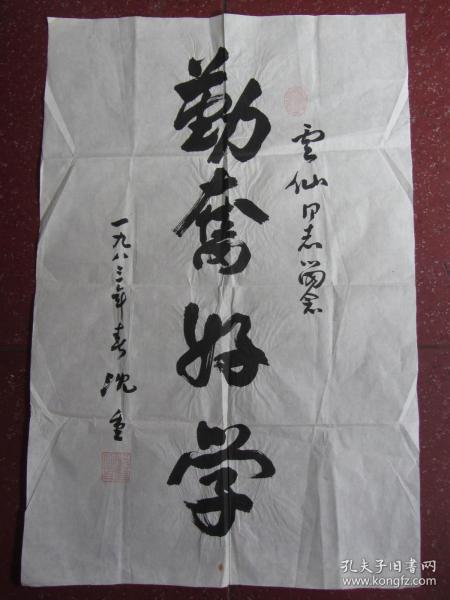 雲仙同志留念
勤奮好学
一九八三年春 沈重
孔夫子旧书网
www.kongfz.com